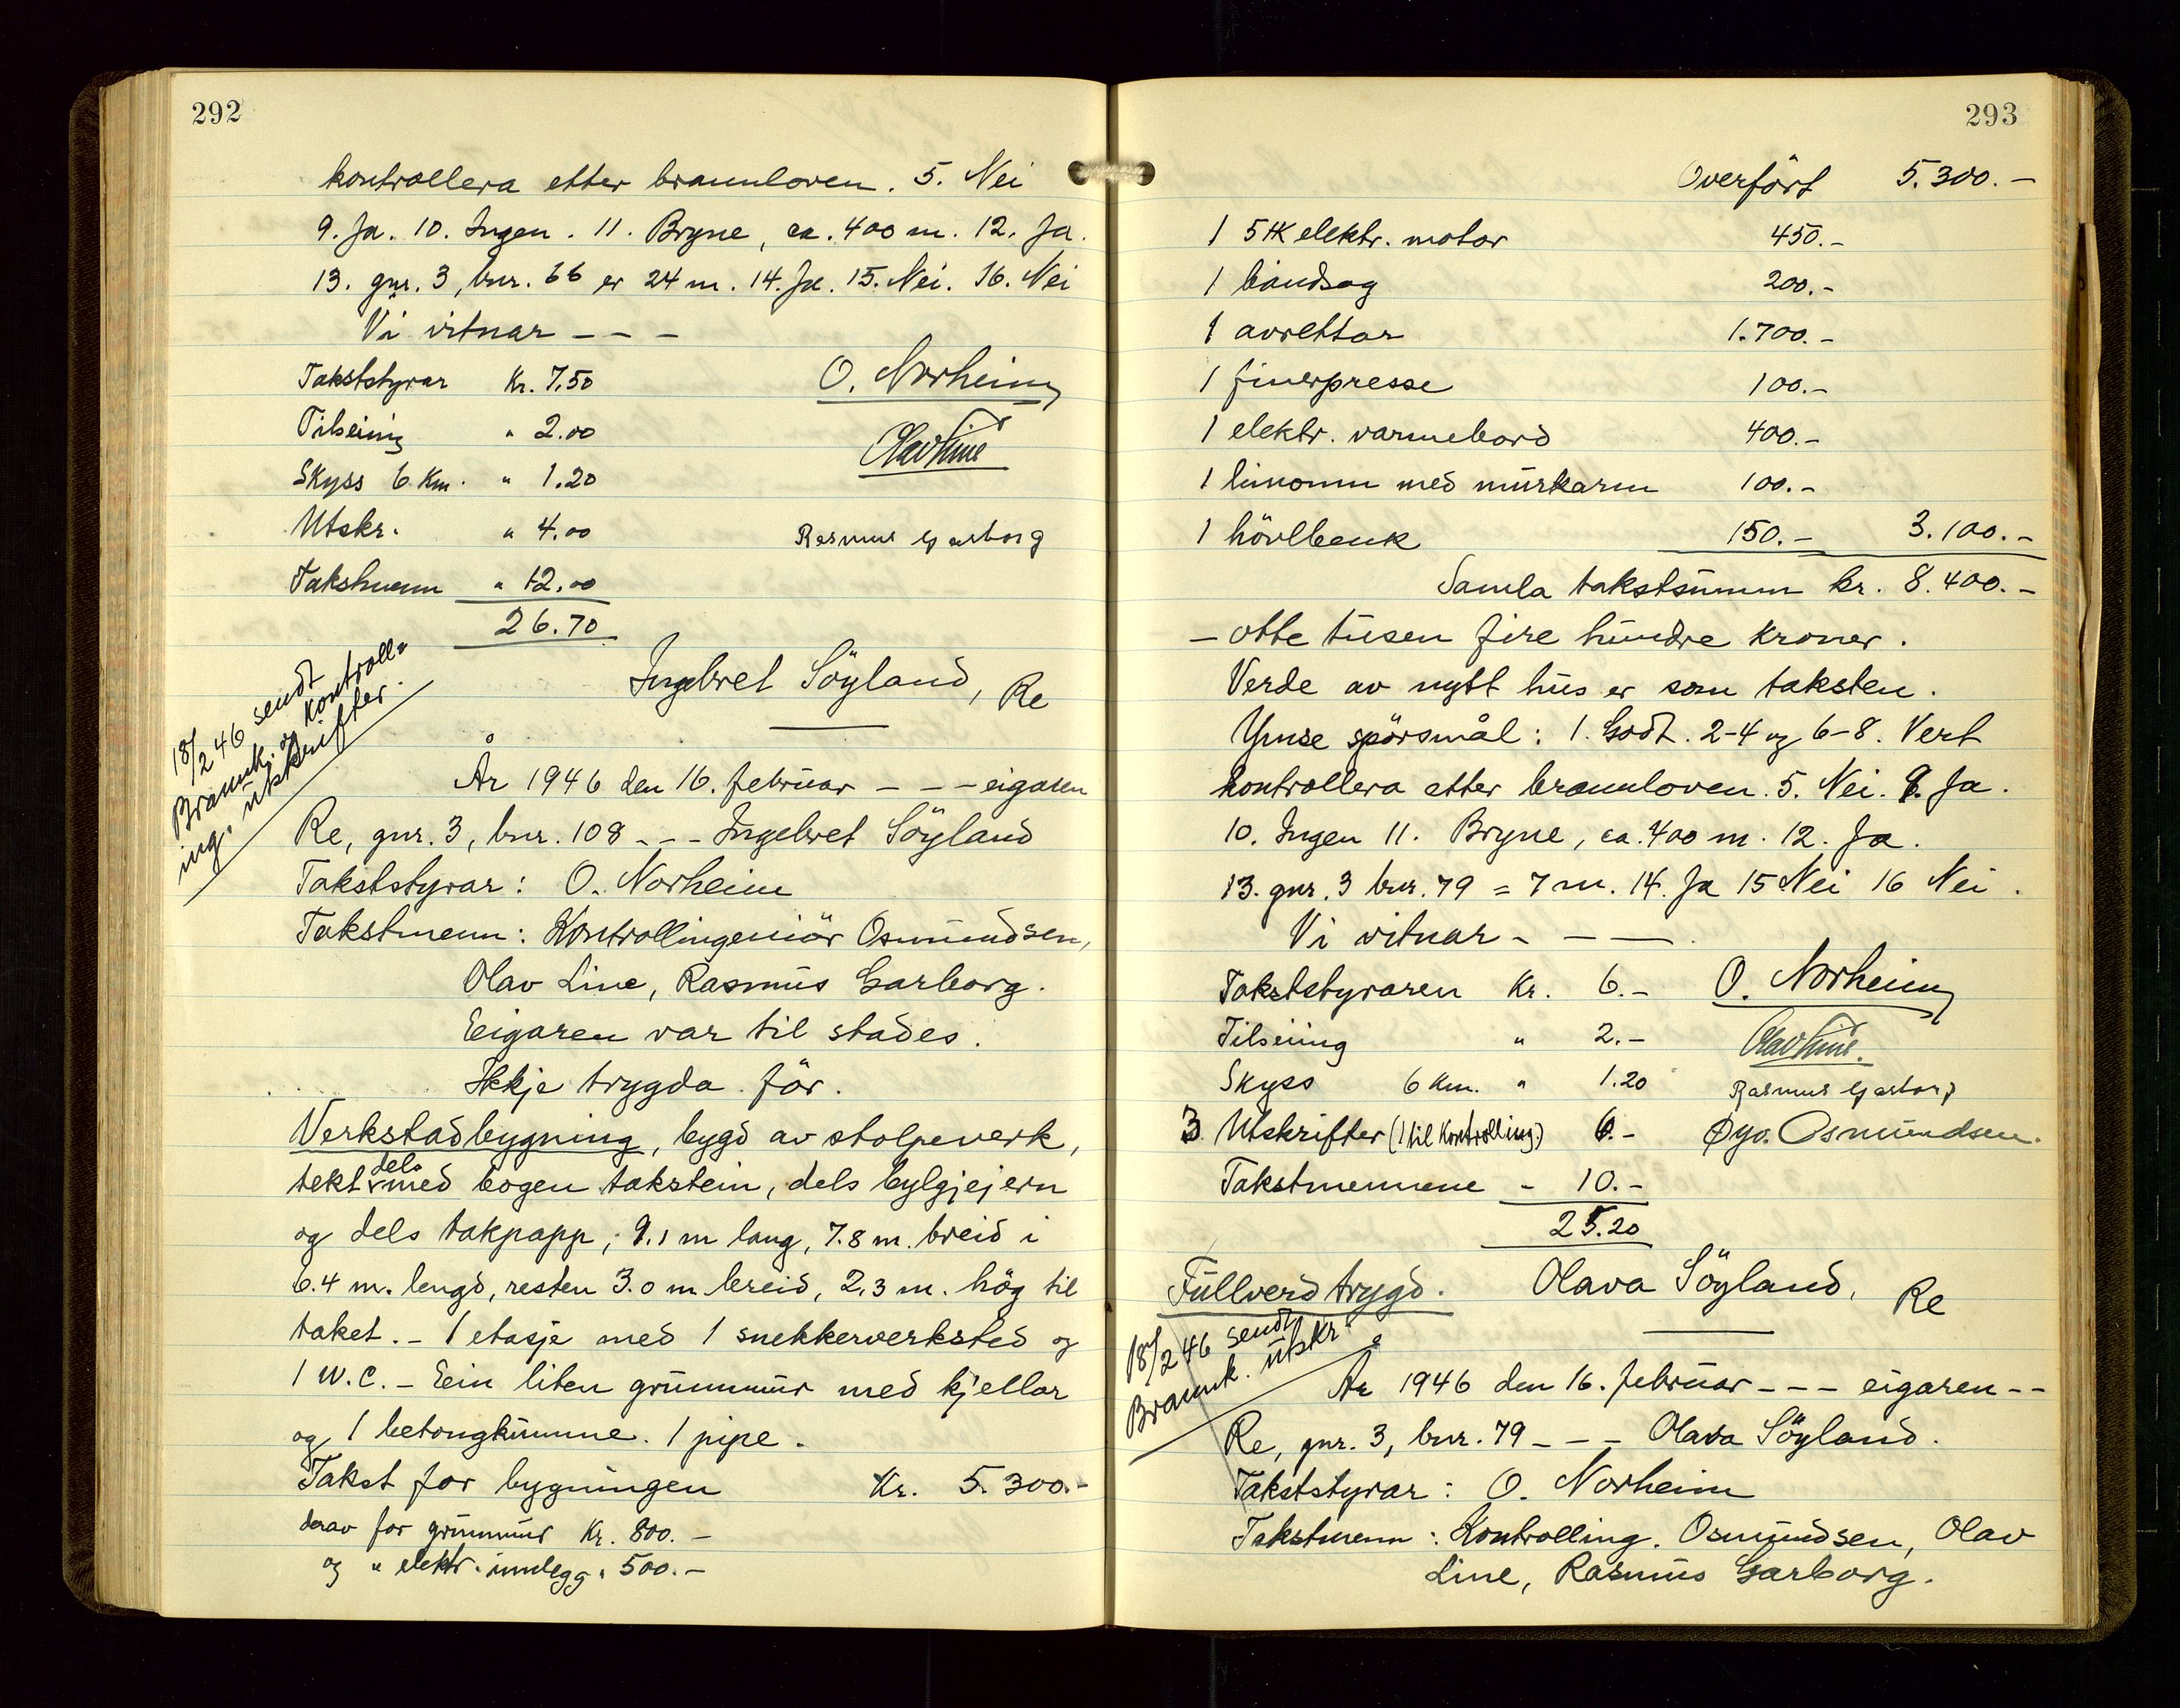 292
kontrollera etter brannloven. 5. Nei
9. Ja. 10. Ingen. 11. Bryne, ca. 400 m. 12. Ja.
13. gnr. 3, bnr. 66 er 24 m. 14. Ja. 15. Nei. 16. Nei
Vi vitnar - - -
Takststyrar Kr. 7.50
O. Norheim
Tilseing " 2.00
Olav Line
Skyss 6 Km. " 1.20
Utskr. " 4.00
Rasmus Garborg
Takstmenn " 12.00
26.70
18/2 46 sendt
Brannk. og kontroll-
ing. utskrifter.
Ingebret Söyland, Re
År 1946 den 16. februar - - - eigaren
Re, gnr. 3, bnr. 108 - - - Ingebret Söyland
Takststyrar: O. Norheim
Takstmenn: Kontrollingeniör Osmundsen,
Olav Line, Rasmus Garborg.
Eigaren var til stades.
Ikkje trygda för.
Verkstadbygning, bygd av stolpeverk,
tekt dels med bogen takstein, dels bylgjejern
og dels takpapp, 9.1 m lang, 7.8 m. breid i
6.4 m. lengd, resten 3.0 m breid, 2,3 m. hög til
taket. - 1 etasje med 1 snekkerverksted og
1 W.C. - Eein liten grunnmur med kjellar
og 1 betongkumme. 1 pipe.
Takst for bygningen Kr. 5.300.-
derav for grunnmur Kr. 800.-
og " elektr. innlegg " 500.-
293
Overfört 5.300.-
1 5 HK elektr. motor 450.-
1 bandsag 200.-
1 avrettar 1.700.-
1 finerpresse 100.-
1 elektr. varmebord 400.-
1 limomn med murkarm 100.-
1 hövlbenk 150.- 3.100.-
Samla takstsumm kr. 8.400.-
- otte tusen fire hundre kroner.
Verde av nytt hus er som taksten.
Ymse spörsmål: 1. Godt. 2-4 og 6-8. Vert
kontrollera etter brannloven. 5. Nei. 9. Ja.
10. Ingen 11. Bryne, ca. 400 m. 12. Ja.
13. gnr. 3 bnr. 79 = 7 m. 14. Ja 15 Nei 16 Nei.
Vi vitnar - - -
Takststyraren Kr. 6.- O. Norheim
Tilseiing " 2.- Olav Line.
Skyss 6 Km. " 1.20 Rasmus Garborg
3 Utskrifter (1 til Kontrolling.) 6.- Øyv. Osmundsen.
Takstmennene - 10.-
25.20
Fullverd trygd. Olava Söyland, Re
18/2 46 sendt
Brannk. utskr.
År 1946 den 16. februar - - - eigaren - -
Re, gnr. 3, bnr. 79 - - - Olava Söyland.
Takststyrar: O. Norheim
Takstmenn: Kontrolling. Osmundsen, Olav
Line, Rasmus Garborg.